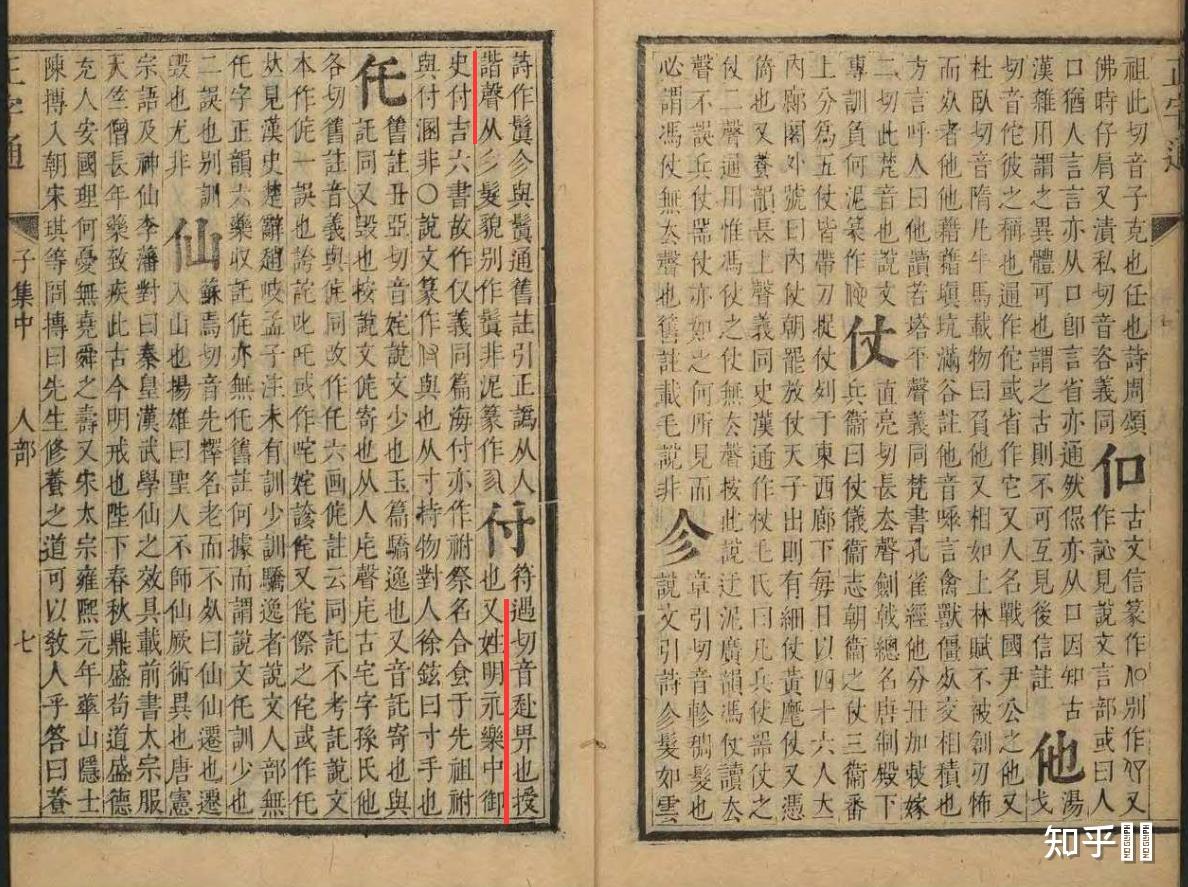 正字通
祖此切音子克也任也詩周頌 㐰 古文信篆作別作又
佛時仔肩又濆私切音咨義同 作訫見說文言部或曰人
口猶人言言亦从口卽言省亦通然㐰亦从口因知古 他 湯
漢雜用謂之異體可也謂之古則不可互見後信註 戈
切音佗彼之稱也通作佗或省作它又人名戰國尹公之他又
杜臥切音隋凡牛馬載物曰負他又相如上林賦不被創刃怖
而死者他他藉藉塡坑滿谷註他音唾言禽獸僵死交相積也
方言呼人曰他讀若塔平聲義同梵書孔雀經他分丑加敕嫁
二切此梵音也說文 仗 直亮切長去聲劒戟總名唐制殿下
專訓負何泥篆作 兵衞曰仗儀衞志朝衞之仗三衞番
上分爲五仗皆帶刀捉仗列于東西廊下每日以四十六人大
內廊閣外號曰內仗朝罷放仗天子出則有細仗黃麾仗又憑
倚也又養韻長上聲義同史漢通作杖毛氏曰凡兵仗器仗之
仗二聲通用惟馮仗之仗無去聲按此說迂泥廣韻馮仗讀去
聲不誤兵仗器仗亦如之何所見而 㐱 章引切音軫稠髮也
必謂馮仗無去聲也舊註載毛說非 說文引詩㐱髮如雲
詩作鬒㐱與鬒通舊註引正譌从人 付 符遇切音赴畀也授
諧聲从彡髮貌別作鬒非泥篆作 也又姓明永樂中御
史付吉六書故作仅義同篇海付亦作祔祭名合食于先祖祔
與付溷非○說文篆作與也从寸持物對人徐鉉曰寸手也
仛 舊註丑亞切音姹說文少也玉篇驕逸也又音託寄也與
託同又毀也按說文侂寄也从人㡯聲㡯古宅字孫氏他
各切舊註音義與侂同改作仛六画侂註云同託不考託說文
本作侂一誤也誇詫叱吒或作咤姹諺侘又侘傺之侘或作仛
𠀤見漢史楚辭趙岐孟子注未有訓少訓驕逸者說文人部無
仛字正韻六藥收託侂亦無仛舊註何據而謂說文仛訓少也
二誤也別訓 仙 蘇焉切音先釋名老而不死曰仙仙遷也遷
毀也尤非 入山也揚雄曰聖人不師仙厥術異也唐憲
宗語及神仙李藩對曰秦皇漢武學仙之效具載前書太宗服
天竺僧長年藥致疾此古今明戒也陛下春秋鼎盛苟道盛德
充人安國理何憂無堯舜之壽又宋太宗雍熙元年華山隱士
陳摶入朝宋琪等問摶曰先生修養之道可以敎人乎答曰養
正字通 子集中 人部 七
知乎